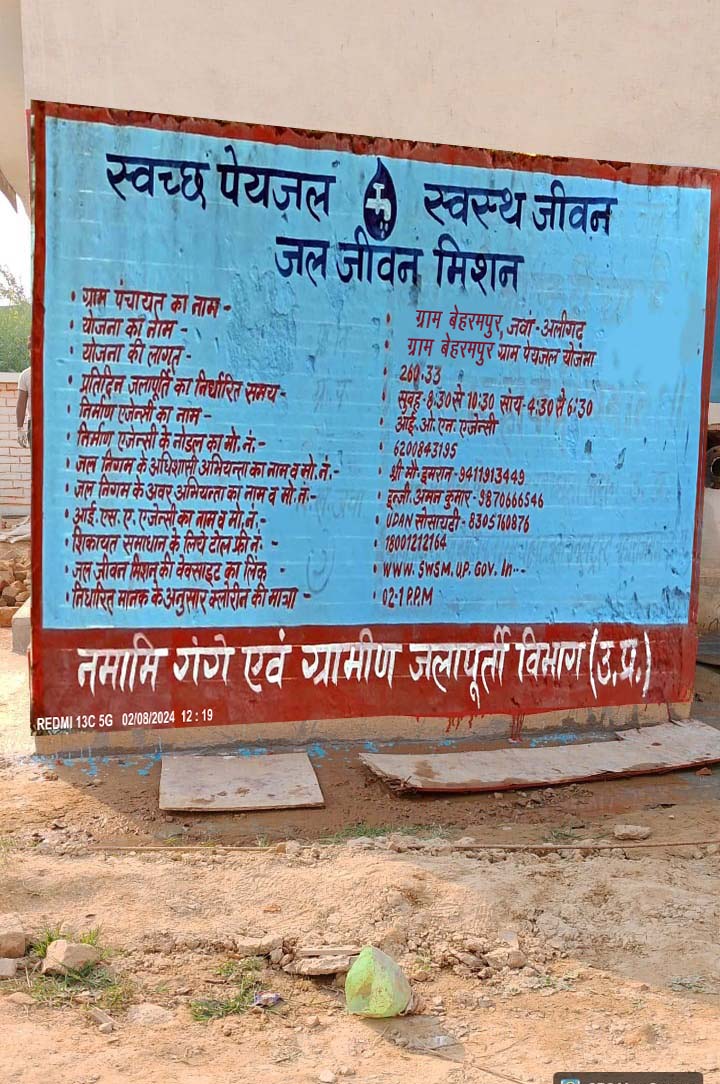 स्वच्छ पेयजल स्वस्थ जीवन
जल जीवन मिशन
• ग्राम पंचायत का नाम - • ग्राम बेहरमपुर, जवां-अलीगढ़
• योजना का नाम - • ग्राम बेहरमपुर ग्राम पेयजल योजना
• योजना की लागत - • 260.33
• प्रतिदिन जलापूर्ति का निर्धारित समय - • सुबह-8:30 से 10:30 सांय-4:30 से 6:30
• निर्माण एजेन्सी का नाम - • आई.ओ.एन. एजेन्सी
• निर्माण एजेन्सी के नोडल का मो. नं.- • 6200843195
• जल निगम के अधिशासी अभियन्ता का नाम व मो. नं.- • श्री मौ० इमरान-9411913449
• जल निगम के अवर अभियन्ता का नाम व मो. नं.- • इन्जी. अमन कुमार-9870666546
• आई.एस.ए. एजेन्सी का नाम व मो. नं.- • UDAN सोसायटी-8305760876
• शिकायत समाधान के लिये टोल फ्री नं.- • 18001212164
• जल जीवन मिशन की वेवसाइट का लिंक - • WWW. SWSM. UP. GOV. In--
• निर्धारित मानक के अनुसार क्लोरीन की मात्रा - • 02-1 P.P.M
नमामि गंगे एवं ग्रामीण जलापूर्ती विभाग (उ.प्र.)
REDMI 13C 5G 02/08/2024 12:19